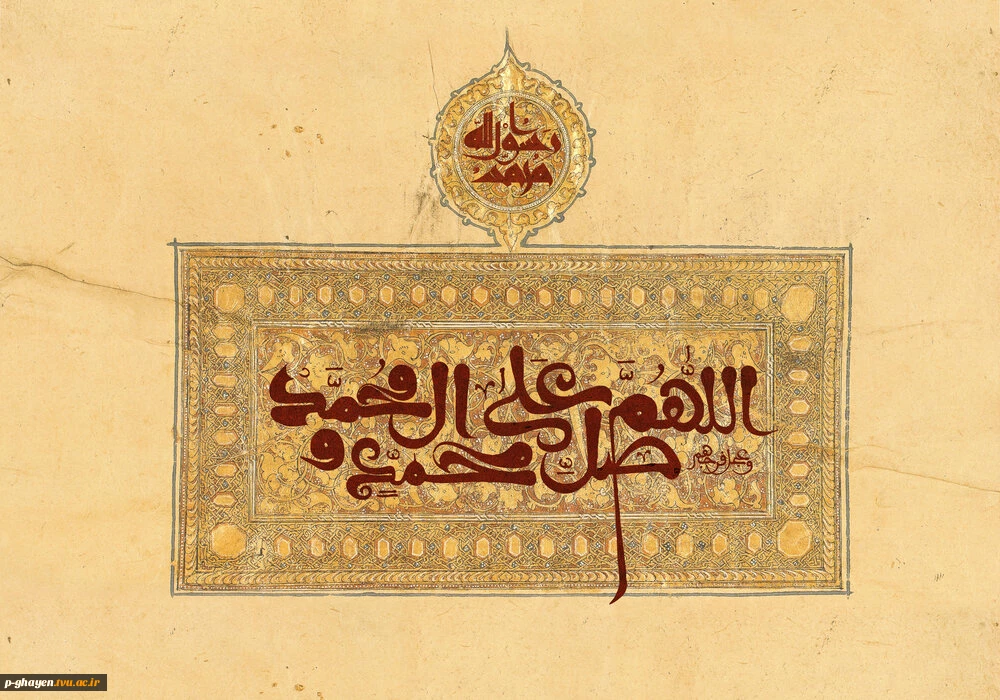 رسول الله
محمد
اللَّهُمَّ صلِّ عَلی محمَّدٍ و ال محمَّد
و عجل فرجهم
p-ghayen.tvu.ac.ir